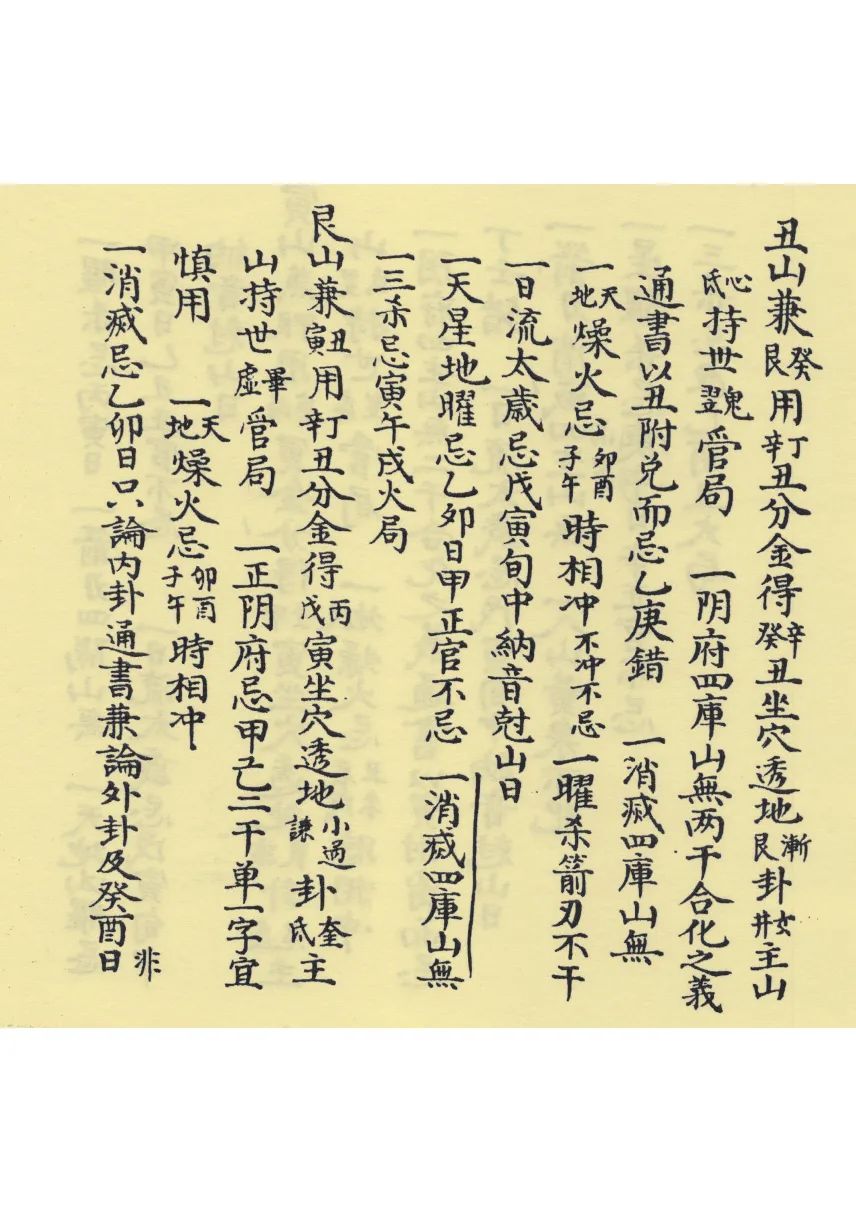 丑山兼癸艮用丁辛丑分金得辛癸丑坐穴透地漸艮卦女井主山
心氐持世鬼翌管局　一阴府四庫山無两干合化之義
通書以丑附兑而忌乙庚錯　一消烕四庫山無
一天地燥火忌卯酉子午時相冲不冲不忌一曜杀箭刃不干
一日流太歲忌戊寅旬中納音尅山日
一天星地曜忌乙卯日甲正官不忌　一消烕四庫山無
一三杀忌寅午戌火局
艮山兼丑寅用丁辛丑分金得丙戊寅坐穴透地小過謙卦奎氐主
山持世畢虛管局　一正阴府忌甲己二干单一字宜
慎用　一天地燥火忌卯酉子午時相冲
一消烕忌乙卯日只論内卦通書兼論外卦及癸酉日非